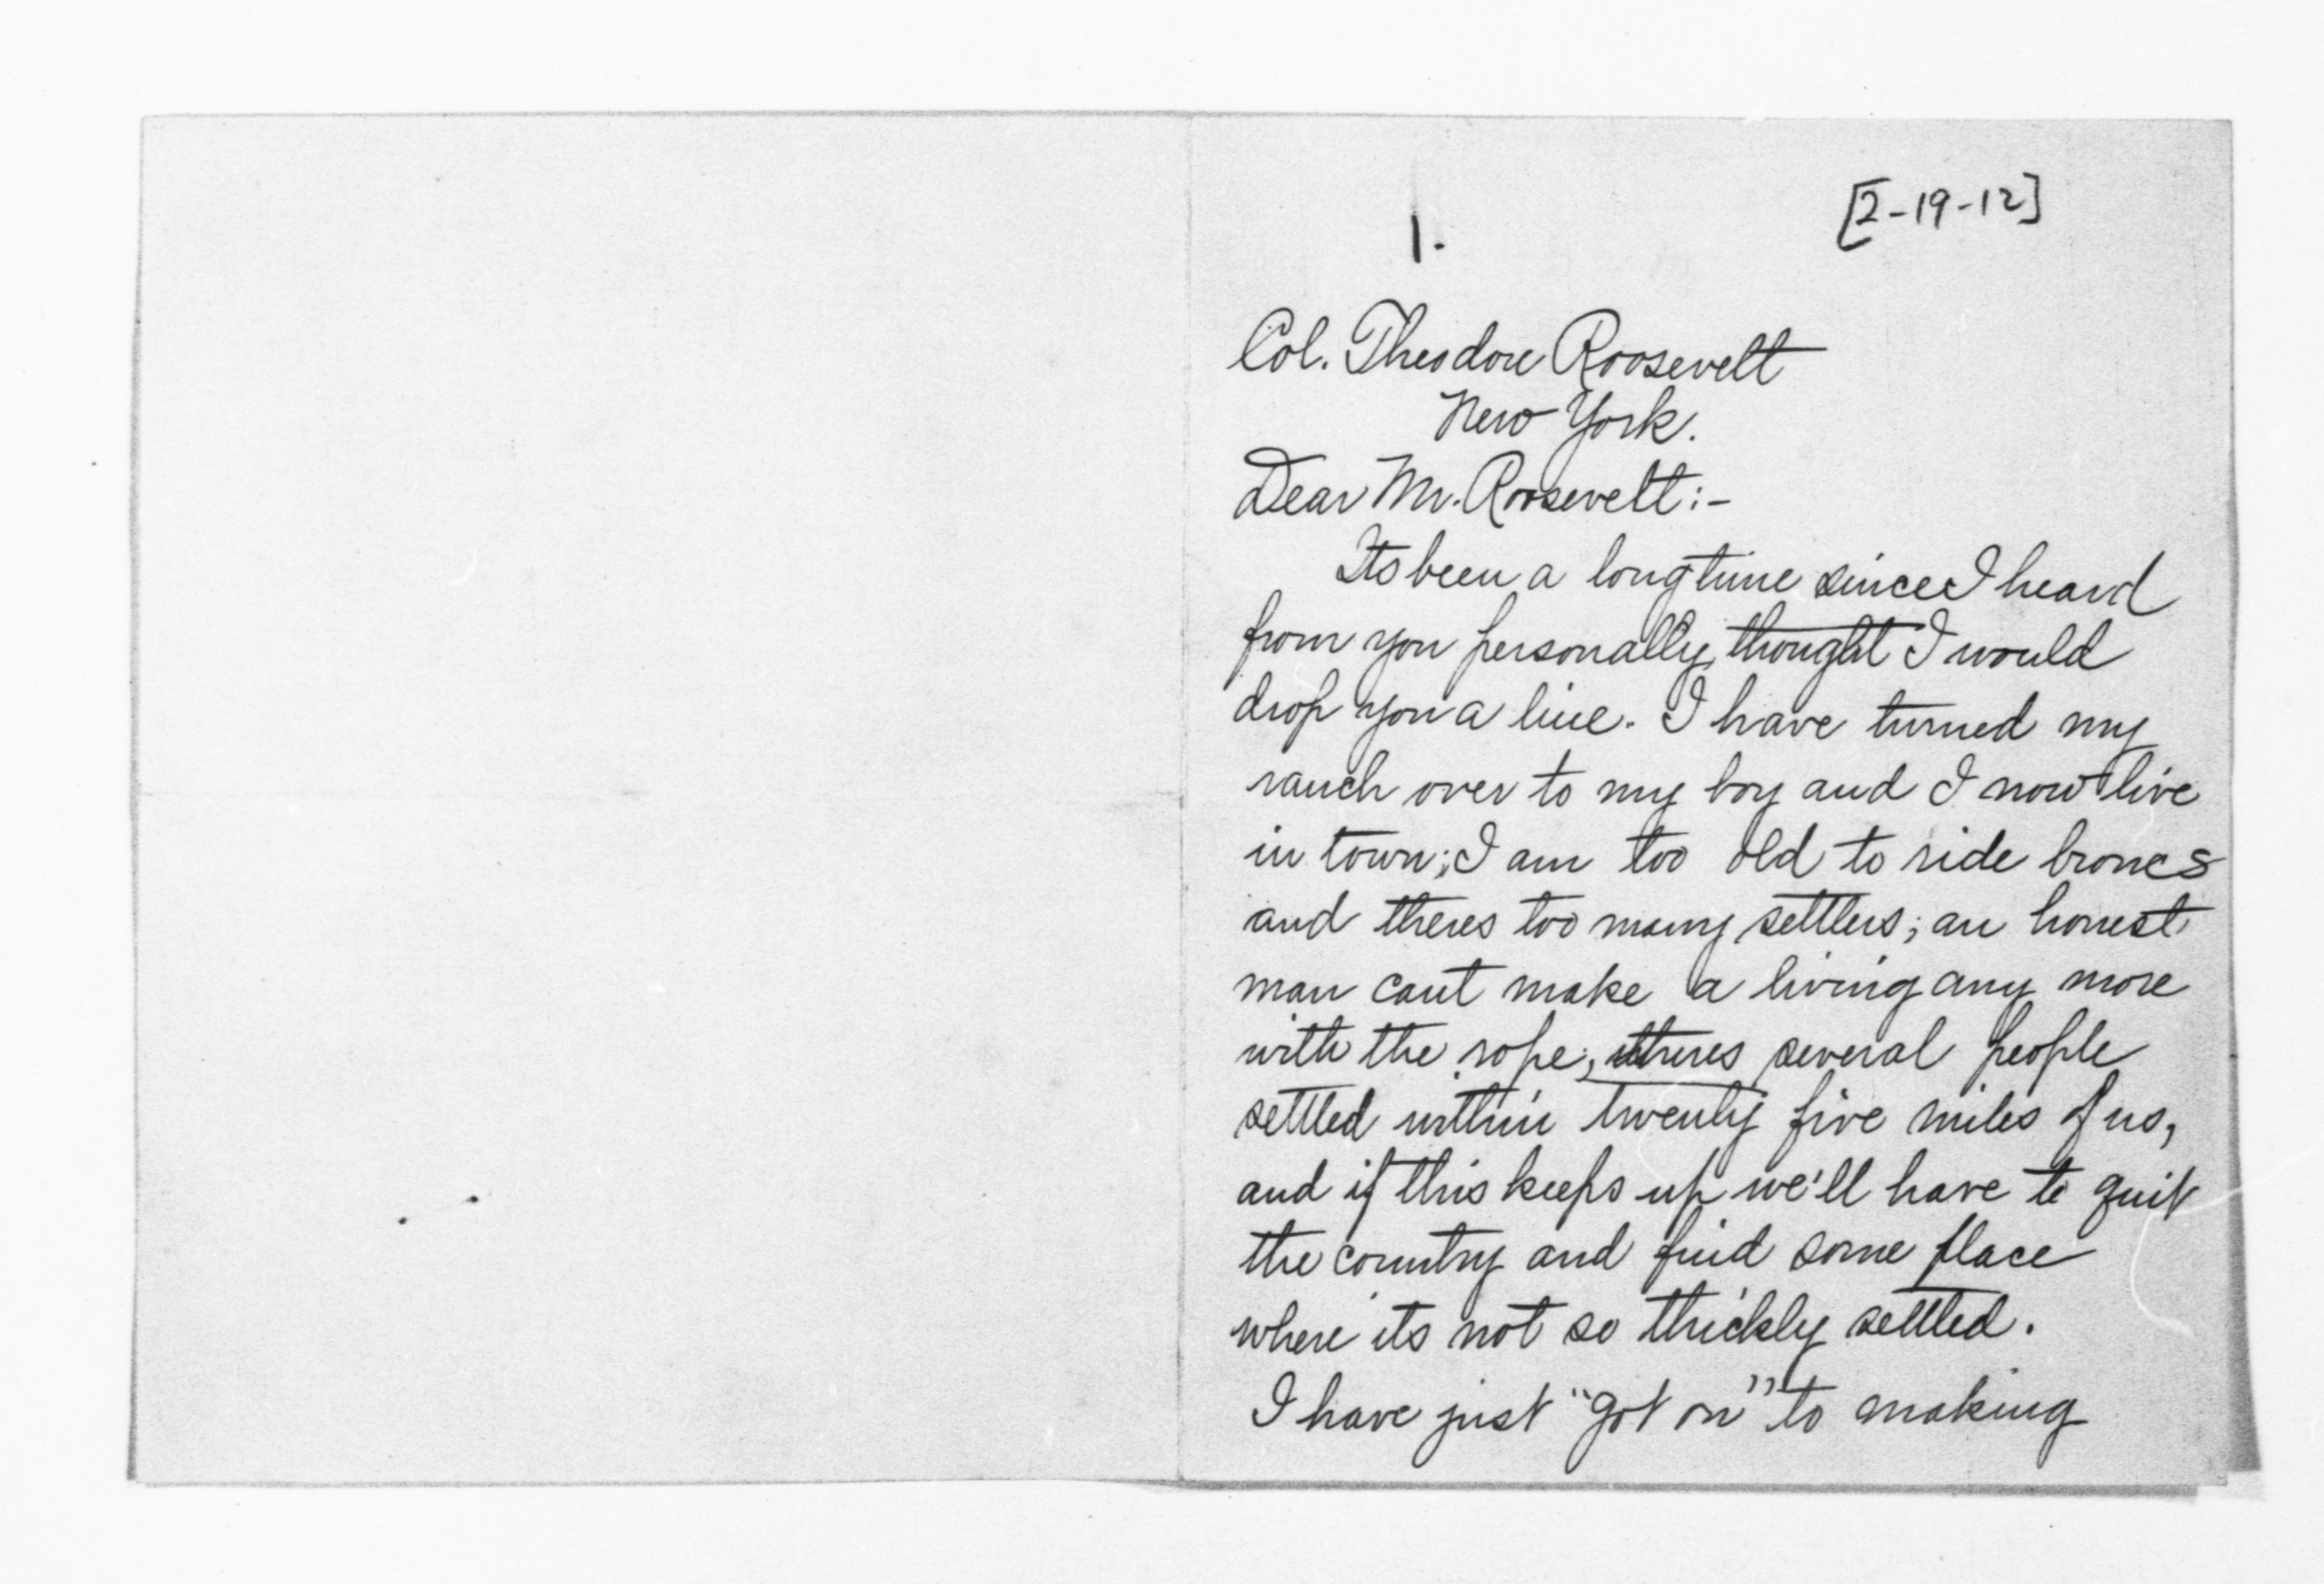 1.
[2-19-12]
Col. Theodore Roosevelt
New York.
Dear Mr. Roosevelt:-
Its been a long time since I heard
from you personally, thought I would
drop you a line. I have turned my
ranch over to my boy and I now live
in town; I am too old to ride broncs
and theres too many settlers; an honest
man cant make a living any more
with the rope, theres several people
settled within twenty five miles of us,
and if this keeps up we'll have to quit
the country and find some place
where its not so thickly settled.
I have just "got on" to making